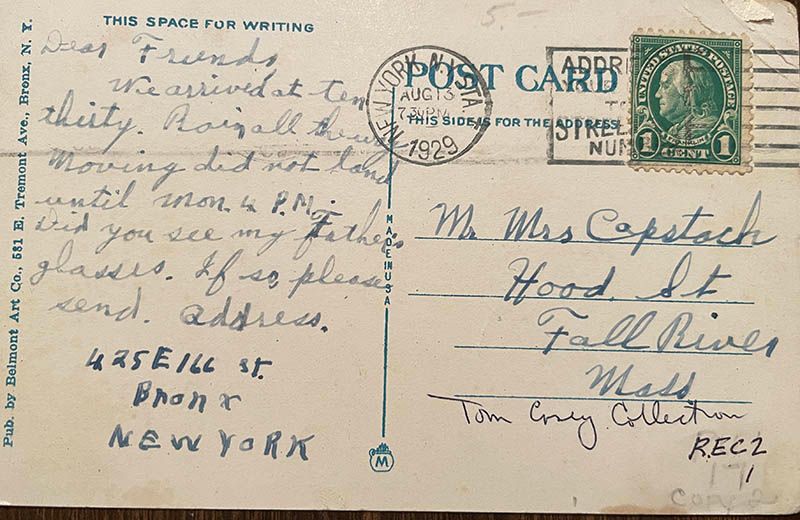 THIS SPACE FOR WRITING
5.-
Dear Friends
We arrived at ten
thirty. Rain all the way
Moving did not land
until Mon. 4 P.M.
Did you see my Father's
glasses. If so, please
send. Address.
425 E 166 St.
Bronx
NEW YORK
Pub. by Belmont Art Co., 581 E. Tremont Ave., Bronx, N. Y.
MADE IN USA
M
POST CARD
THIS SIDE IS FOR THE ADDRESS
NEW YORK, N.Y. STA.
AUG 13
7:30 PM
1929
ADDRE
TO
STREE
NUM
UNITED STATES POSTAGE
FRANKLIN
1 CENT 1
Mr Mrs Capstock
Hood St
Fall River
Mass
Tom Cosey Collection
REC 2
1
171
Copy 2